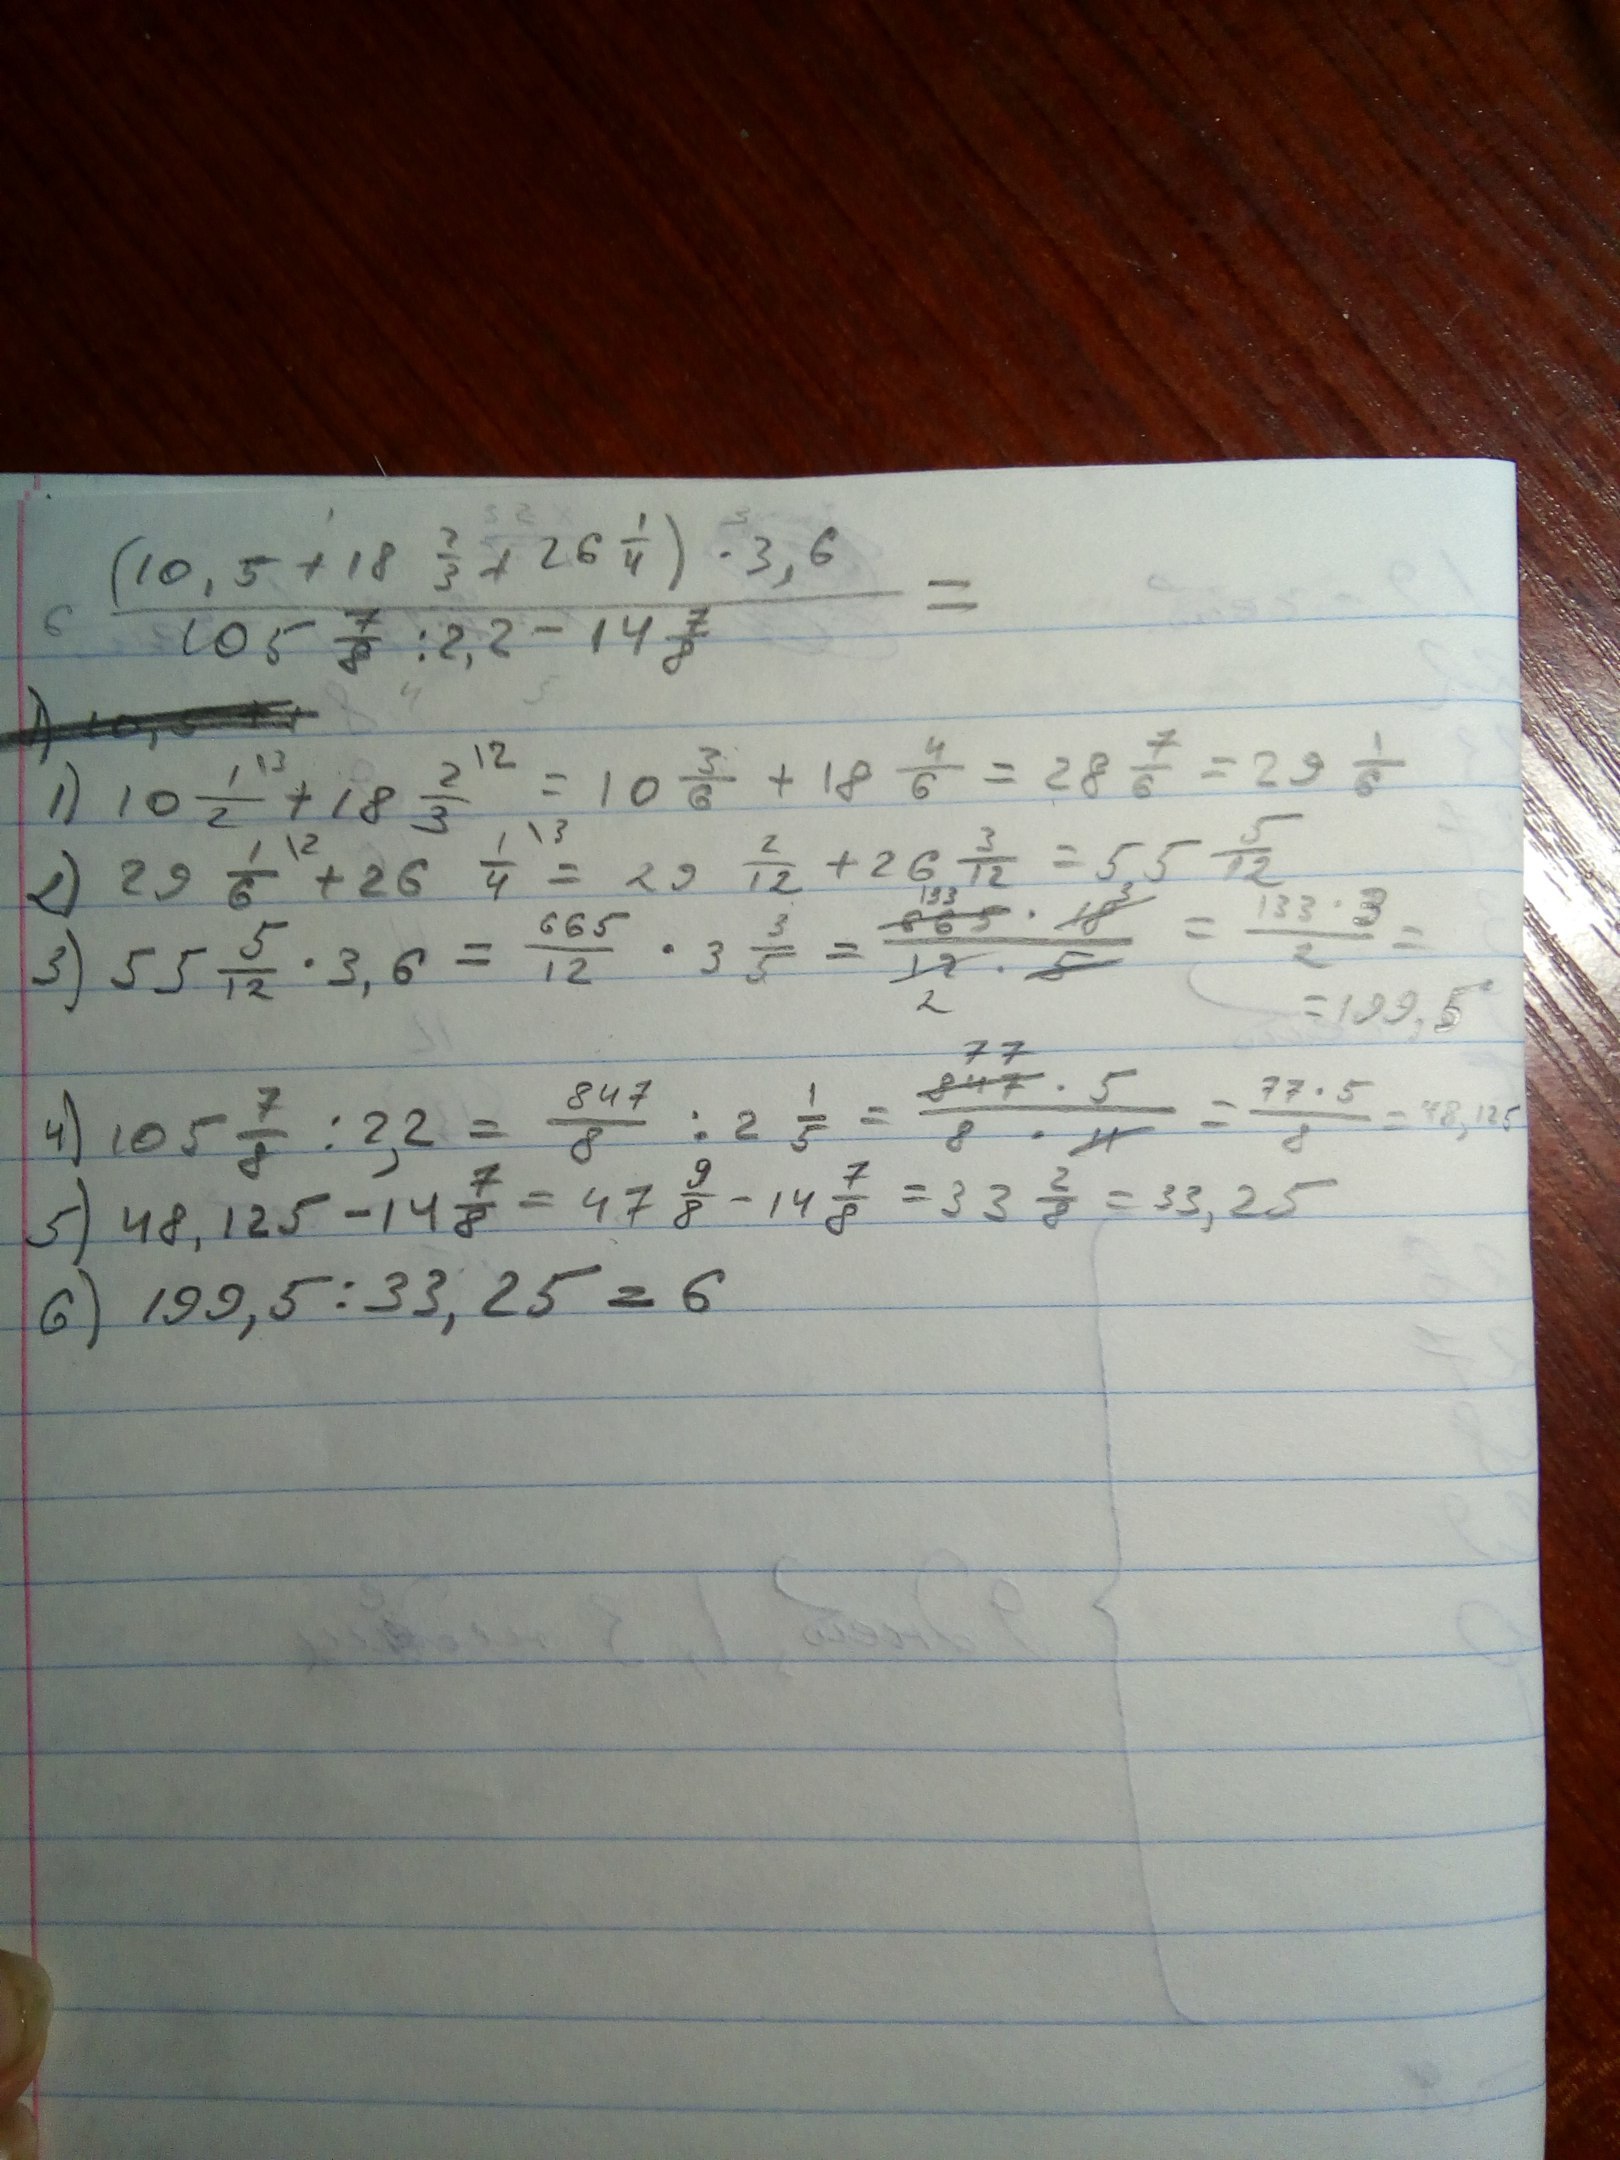 (10,5 + 18 2/3 + 26 1/4) · 3,6
6 ———————— =
105 7/8 : 2,2 - 14 7/8
1) 10 1/2 \3 + 18 2/3 \2 = 10 3/6 + 18 4/6 = 28 7/6 = 29 1/6
2) 29 1/6 \2 + 26 1/4 \3 = 29 2/12 + 26 3/12 = 55 5/12
3) 55 5/12 · 3,6 = 665/12 · 3 3/5 = 665 133 · 18 3 / 12 2 · 5 = 133 · 3 / 2 =
= 199,5
4) 105 7/8 : 2,2 = 847/8 : 2 1/5 = 847 77 · 5 / 8 · 11 = 77 · 5 / 8 = 48,125
5) 48,125 - 14 7/8 = 47 9/8 - 14 7/8 = 33 2/8 = 33,25
6) 199,5 : 33,25 = 6